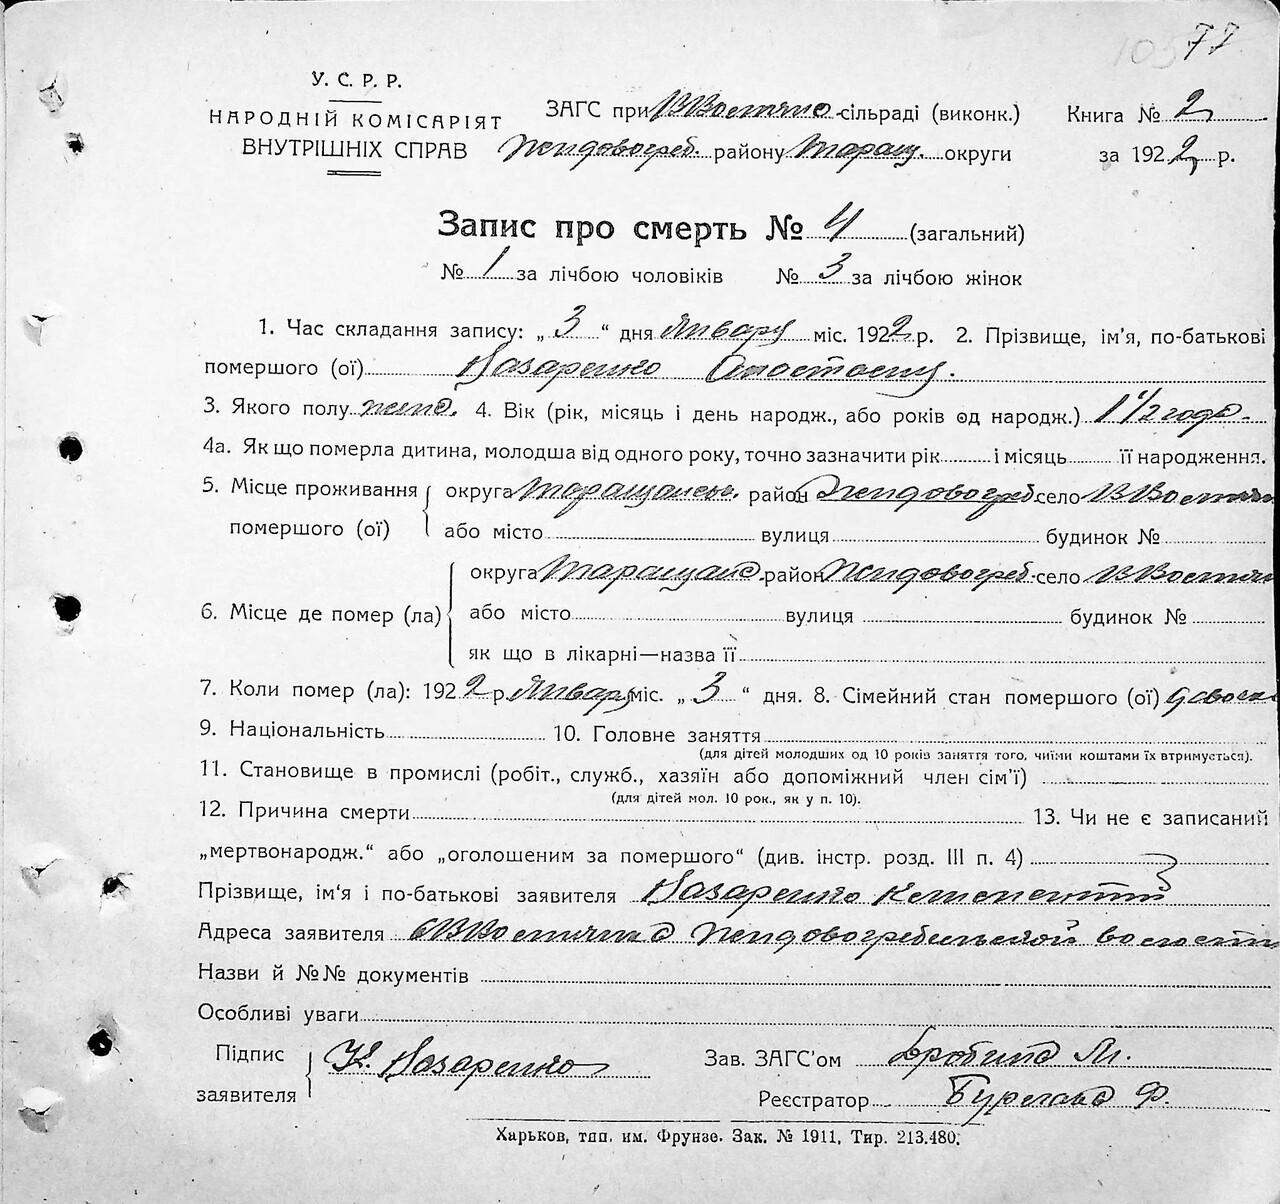 77
У. С. Р. Р.
НАРОДНІЙ КОМІСАРІЯТ
ВНУТРІШНІХ СПРАВ
ЗАГС при сільраді (виконк.)
Жидовогреб. району Таращ. округи
Книга № 2
за 1922 р.
Запис про смерть № 4 (загальний)
№ 1 за лічбою чоловіків № 3 за лічбою жінок
1. Час складання запису: „ 3 “ дня Январу міс. 1922 р. 2. Прізвище, ім'я, по-батькові
помершого (ої) Назаренко
3. Якого полу женс. 4. Вік (рік, місяць і день народж., або років од народж.) 1 1/2 года.
4а. Як що померла дитина, молодша від одного року, точно зазначити рік і місяць її народження.
5. Місце проживання округа район Жидовогреб. село
помершого (ої) або місто вулиця будинок №
округа район Жидовогреб. село
6. Місце де помер (ла) або місто вулиця будинок №
як що в лікарні—назва її
7. Коли помер (ла): 1922 р. Январу міс. „ 3 “ дня. 8. Сімейний стан помершого (ої)
9. Національність 10. Головне заняття
(для дітей молодших од 10 років заняття того, чиїми коштами їх втримується).
11. Становище в промислі (робіт., служб., хазяїн або допоміжний член сім'ї)
(для дітей мол. 10 рок., як у п. 10).
12. Причина смерти 13. Чи не є записаний
„мертвонародж.“ або „оголошеним за помершого“ (див. інстр. розд. III п. 4)
Прізвище, ім'я і по-батькові заявителя Назаренко
Адреса заявителя Жидовогребельской волости
Назви й №№ документів
Особливі уваги
Підпис
заявителя К. Назаренко
Зав. ЗАГС'ом М.
Реєстратор Ф.
Харьков, тип. им. Фрунзе. Зак. № 1911, Тир. 213.480.